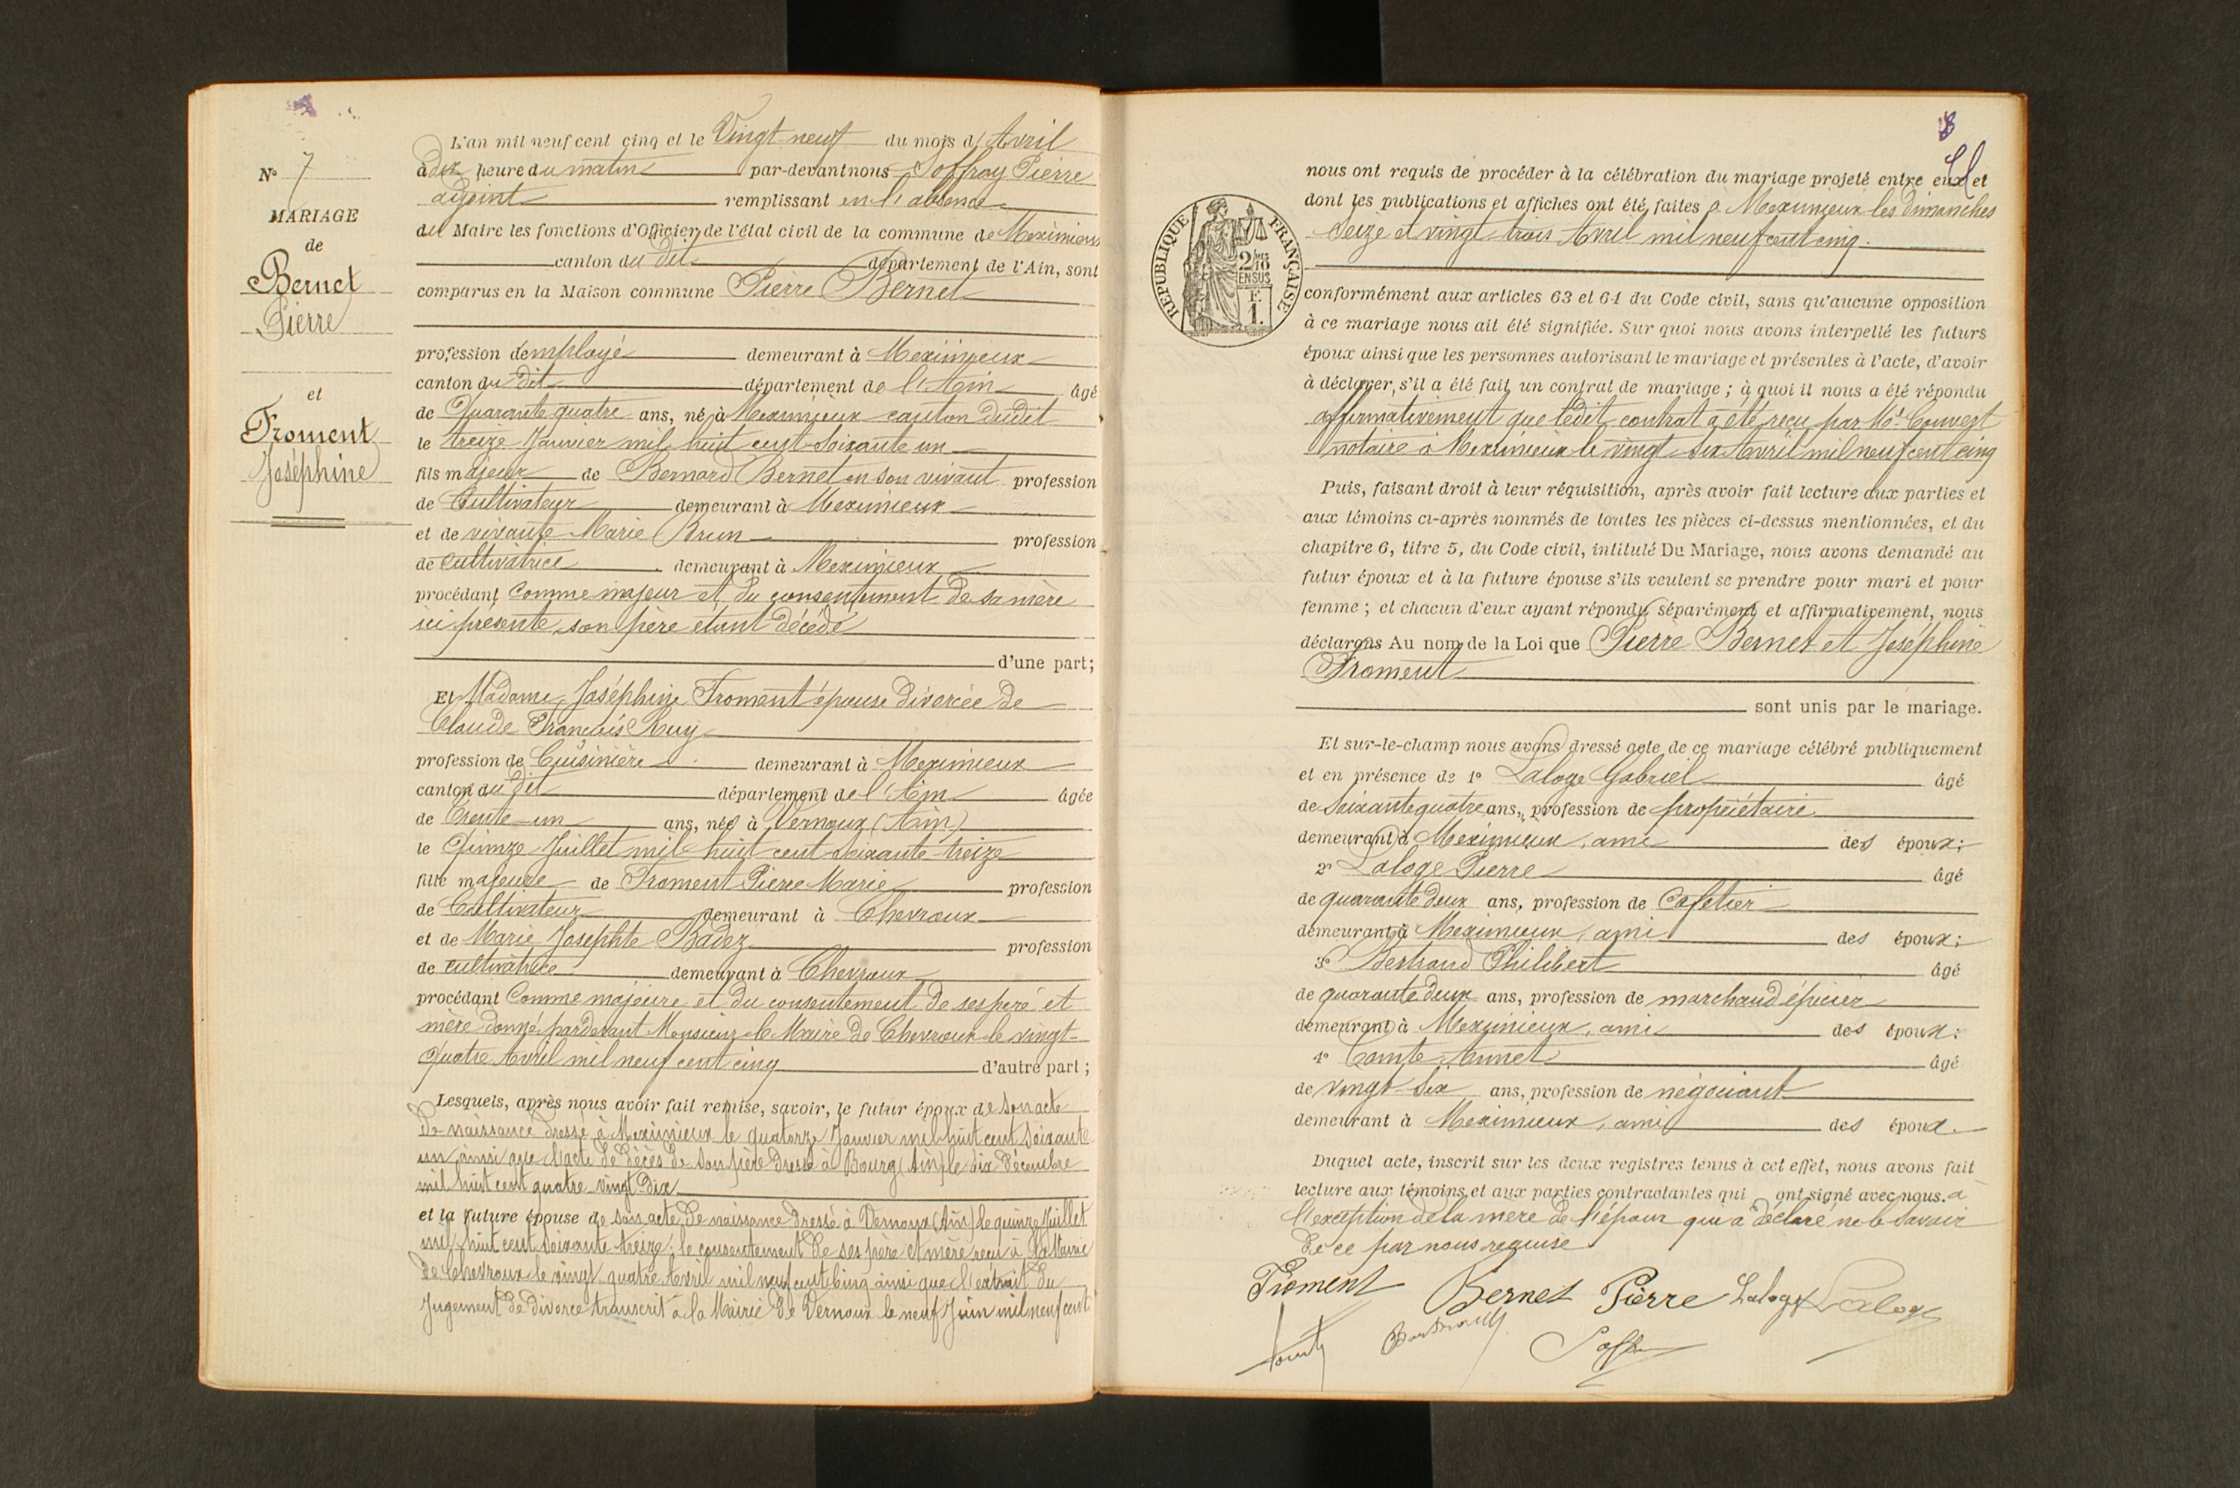 N° 7
MARIAGE
de
Bernet
Pierre
et
Froment
Joséphine
L'an mil neuf cent cinq et le Vingt-neuf du mois d'Avril
à dix heure du matin par-devant nous Soffray Pierre
adjoint remplissant en l'absence
du Maire les fonctions d'Officier de l'état civil de la commune de Meximieux
canton du dit département de l'Ain, sont
comparus en la Maison commune Pierre Bernet
profession d'employé demeurant à Meximieux
canton du dit département de l'Ain âgé
de Quarante quatre ans, né à Meximieux canton dudit
le treize Janvier mil huit cent soixante un
fils majeur de Bernard Bernet en son vivant profession
de Cultivateur demeurant à Meximieux
et de vivante Marie Brun profession
de cultivatrice demeurant à Meximieux
procédant comme majeur et du consentement de sa mère
ici présente, son père étant décédé
d'une part;
Et Madame Joséphine Froment épouse divorcée de
Claude François Ruy
profession de Cuisinière demeurant à Meximieux
canton du dit département de l'Ain âgée
de Trente-un ans, née à Vernoux (Ain)
le Quinze Juillet mil huit cent soixante-treize
fille majeure de Froment Pierre Marie profession
de Cultivateur demeurant à Chevroux
et de Marie Josephte Badez profession
de cultivatrice demeurant à Chevroux
procédant Comme majeure et du consentement de ses père et
mère donné pardevant Monsieur le Maire de Chevroux le vingt-
quatre Avril mil neuf cent cinq d'autre part;
Lesquels, après nous avoir fait remise, savoir, le futur époux de son acte
de naissance dressé à Meximieux le quatorze Janvier mil huit cent soixante
un ainsi que l'acte de décès de son père dressé à Bourg (Ain) le dix décembre
mil huit cent quatre-vingt-dix
et la future épouse de son acte de naissance dressé à Vernoux (Ain) le quinze Juillet
mil huit cent soixante treize; le consentement de ses père et mère reçu à la Mairie
de Chevroux le vingt quatre Avril mil neuf cent cinq ainsi que l'extrait du
Jugement de divorce transcrit à la Mairie de Vernoux le neuf Juin mil neuf cent
8
REPUBLIQUE FRANÇAISE
2/10
EN SUS
F.
1.
nous ont requis de procéder à la célébration du mariage projeté entre eux et
dont les publications et affiches ont été faites à Meximieux les dimanches
Seize et vingt trois Avril mil neuf cent cinq.
conformément aux articles 63 et 64 du Code civil, sans qu'aucune opposition
à ce mariage nous ait été signifiée. Sur quoi nous avons interpellé les futurs
époux ainsi que les personnes autorisant le mariage et présentes à l'acte, d'avoir
à déclarer, s'il a été fait un contrat de mariage; à quoi il nous a été répondu
affirmativement que ledit contrat a été reçu par Me Couvert
notaire à Meximieux le vingt six Avril mil neuf cent cinq
Puis, faisant droit à leur réquisition, après avoir fait lecture aux parties et
aux témoins ci-après nommés de toutes les pièces ci-dessus mentionnées, et du
chapitre 6, titre 5, du Code civil, intitulé Du Mariage, nous avons demandé au
futur époux et à la future épouse s'ils veulent se prendre pour mari et pour
femme; et chacun d'eux ayant répondu séparément et affirmativement, nous
déclarons Au nom de la Loi que Pierre Bernet et Joséphine
Froment
sont unis par le mariage.
Et sur-le-champ nous avons dressé acte de ce mariage célébré publiquement
et en présence de 1° Laloge Gabriel âgé
de soixante quatre ans, profession de propriétaire
demeurant à Meximieux, ami des époux;
2° Laloge Pierre âgé
de quarante deux ans, profession de Cafetier
demeurant à Meximieux, ami des époux;
3° Bertrand Philibert âgé
de quarante deux ans, profession de marchand épicier
demeurant à Meximieux, ami des époux;
4° Comte Annet âgé
de vingt-six ans, profession de négociant
demeurant à Meximieux, ami des époux.
Duquel acte, inscrit sur les deux registres tenus à cet effet, nous avons fait
lecture aux témoins et aux parties contractantes qui ont signé avec nous. à
l'exception de la mère de l'époux qui a déclaré ne le savoir
de ce par nous requise
Froment Bernet Pierre Laloge Laloge
Comte Bertrand Soffray